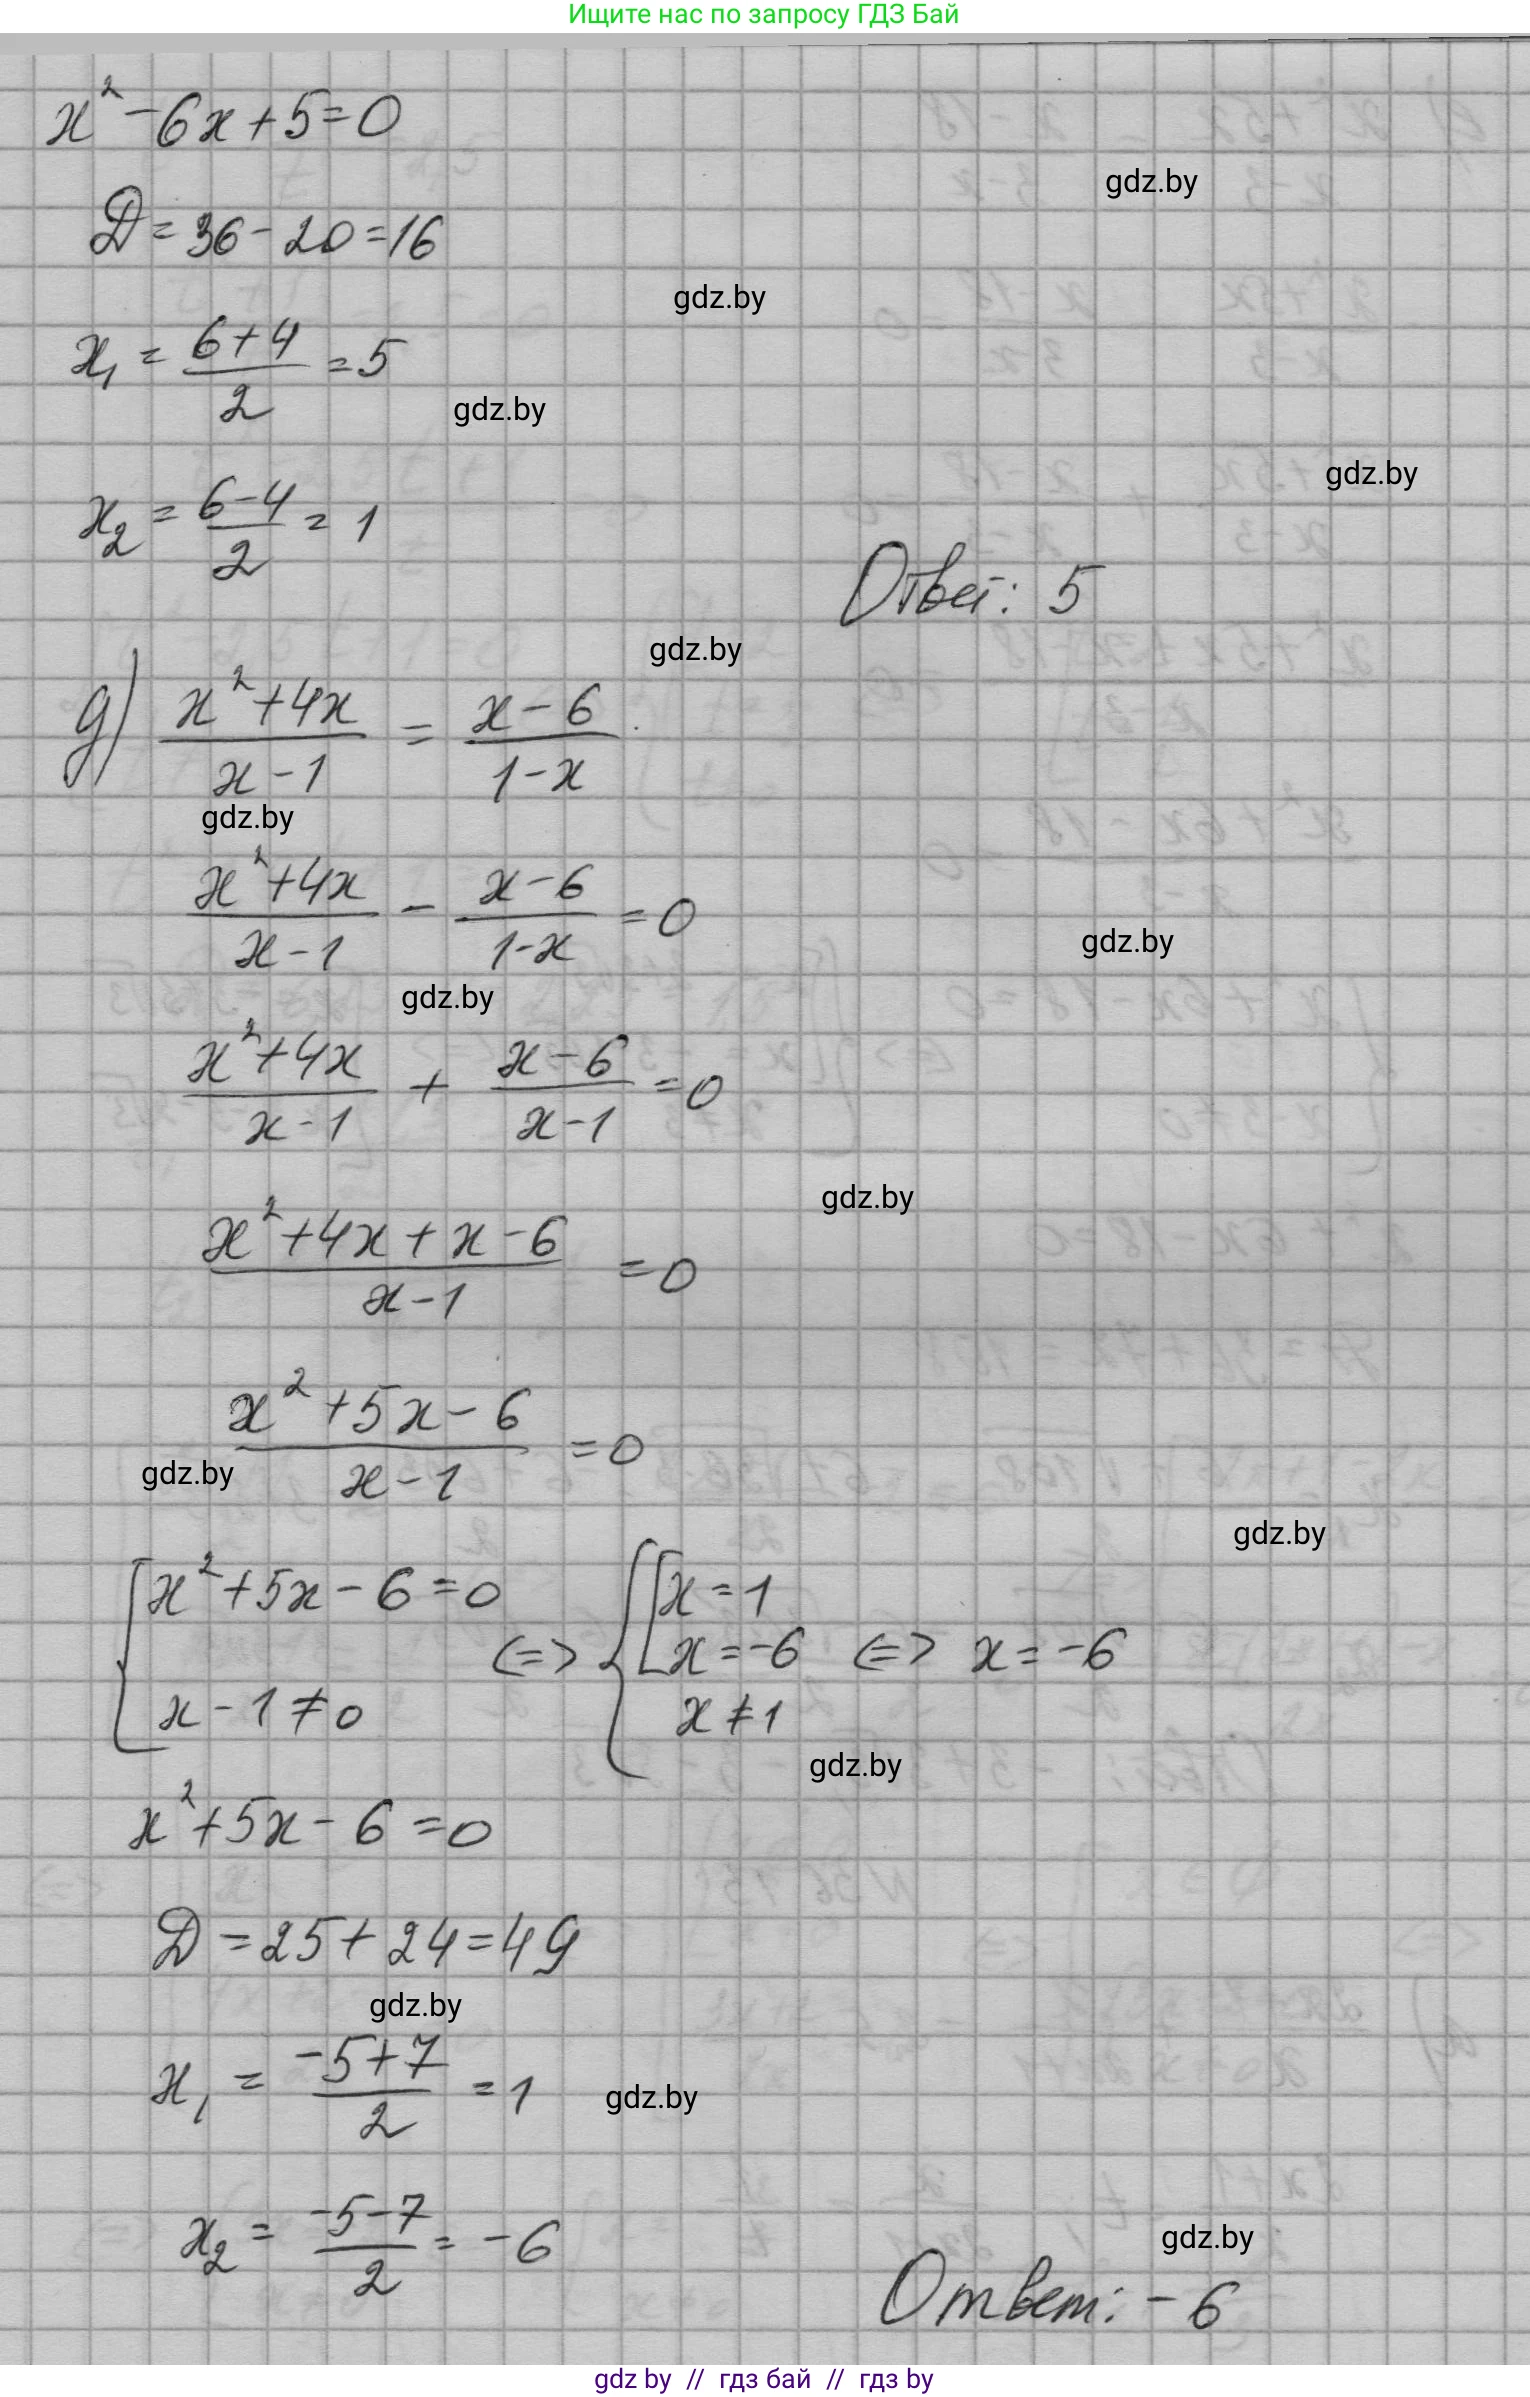 Ищите нас по запросу ГДЗ Бай
x² - 6x + 5 = 0
gdz.by
D = 36 - 20 = 16
gdz.by
x₁ = (6+4)/2 = 5
gdz.by
gdz.by
x₂ = (6-4)/2 = 1
Ответ: 5
gdz.by
д) (x²+4x)/(x-1) = (x-6)/(1-x)
gdz.by
(x²+4x)/(x-1) - (x-6)/(1-x) = 0
gdz.by
gdz.by
(x²+4x)/(x-1) + (x-6)/(x-1) = 0
gdz.by
(x²+4x+x-6)/(x-1) = 0
(x²+5x-6)/(x-1) = 0
gdz.by
gdz.by
{ x²+5x-6=0 <=> { [ x=1
x=-6 <=> x=-6
x-1≠0 x≠1
gdz.by
x²+5x-6=0
D = 25+24=49
gdz.by
x₁ = (-5+7)/2 = 1
gdz.by
x₂ = (-5-7)/2 = -6
gdz.by
Ответ: -6
gdz by // гдз бай // гдз by